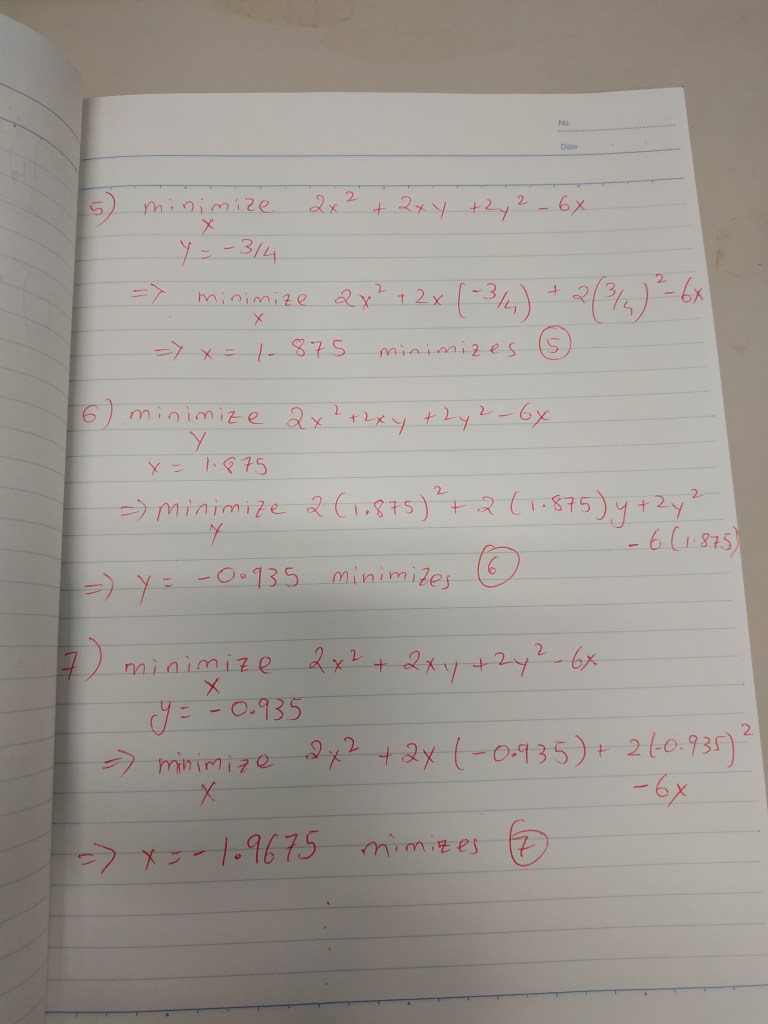 No.
Date
5) minimize 2x² + 2xy + 2y² - 6x
x
y = -3/4
=> minimize 2x² + 2x (-3/4) + 2(3/4)² - 6x
x
=> x = 1.875 minimizes ⑤
6) minimize 2x² + 2xy + 2y² - 6x
y
x = 1.875
=> minimize 2(1.875)² + 2(1.875)y + 2y²
y
- 6(1.875)
=> y = -0.935 minimizes ⑥
7) minimize 2x² + 2xy + 2y² - 6x
x
y = -0.935
=> minimize 2x² + 2x (-0.935) + 2(-0.935)²
x
- 6x
=> x = -1.9675 mimizes ⑦